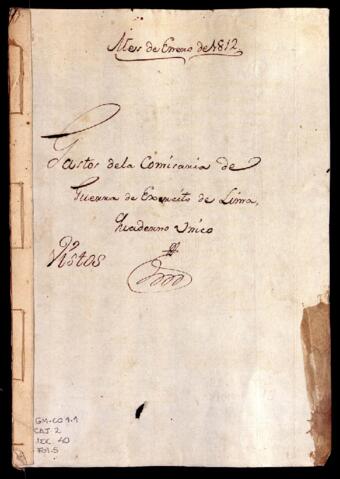 Mes de Enero de 1812
Gastos dela Comisaria de
Guerra de Exercito de Lima,
Quaderno Unico
Vistos
GM-CO 1.1
CAJ. 2
DOC. 40
FOL. 5